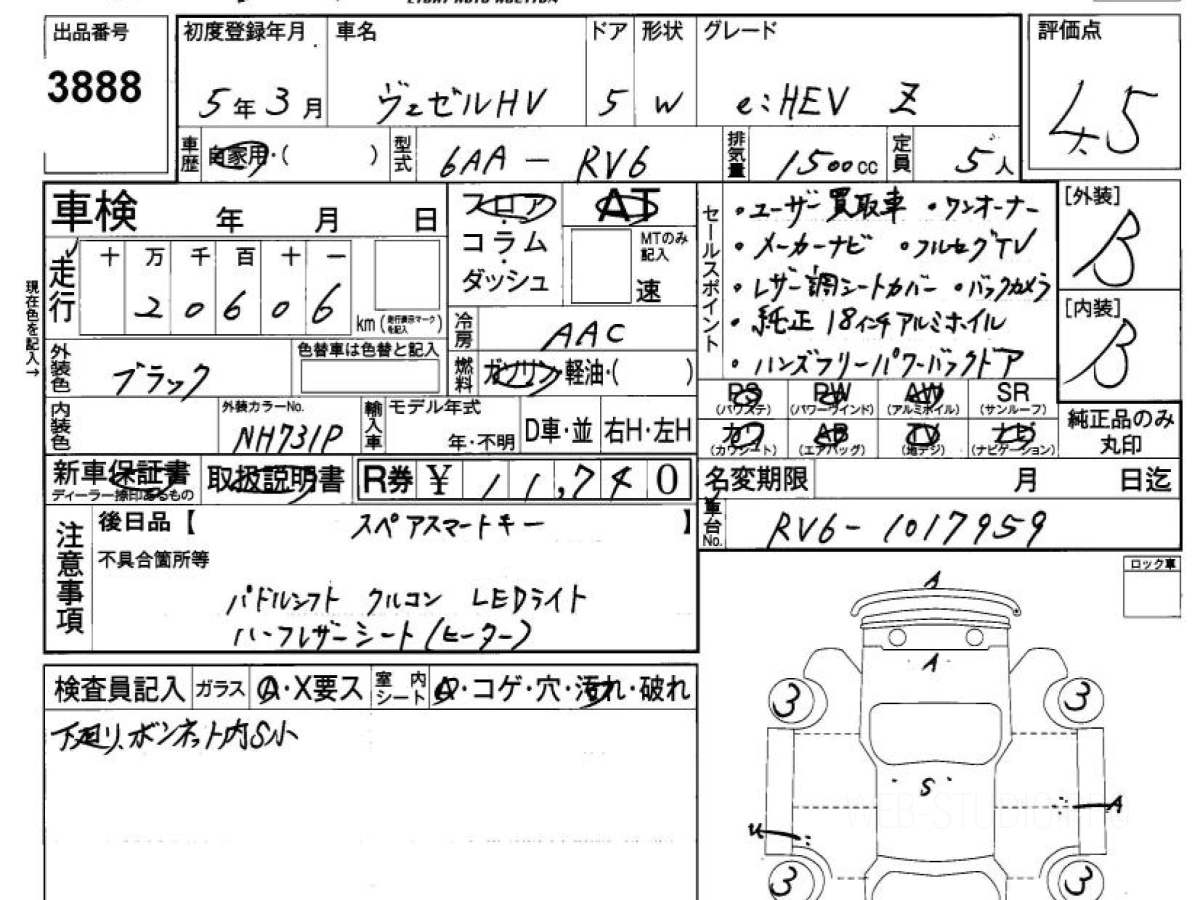 出品番号 初度登録年月 車名 ドア 形状 グレード 評価点
3888 5年3月 ヴェゼルHV 5 W e:HEV Z 4.5
車歴 自家用・( ) 型式 6AA - RV6 排気量 1500cc 定員 5人
車検 年 月 日
フロア・コラム・ダッシュ
AT
MTのみ記入 速
現在色を記入→
走行 十 万 千 百 十 一
20606 km (走行表示マークを記入)
冷房 AAC
燃料 ガソリン・軽油・( )
外装色 ブラック 色替車は色替と記入
内装色 外装カラーNo. NH731P 輸入車 モデル年式 年・不明 D車・並 右H・左H
新車保証書 ディーラー捺印あるもの 取扱説明書 R券 ¥ 11,740
セールスポイント
・ユーザー買取車 ・ワンオーナー
・メーカーナビ ・フルセグTV
・レザー調シートカバー ・バックカメラ
・純正18インチアルミホイル
・ハンズフリーパワーバックドア
[外装] B
[内装] B
PS (パワステ) PW (パワーウインド) AW (アルミホイル) SR (サンルーフ)
カワ (カワシート) AB (エアバッグ) TV (地デジ) ナビ (ナビゲーション)
純正品のみ丸印
名変期限 月 日迄
車台No. RV6-1017959
注意事項
後日品【 スペアスマートキー 】
不具合箇所等
パドルシフト クルコン LEDライト
ハーフレザーシート(ヒーター)
検査員記入 ガラス A・X要ス 室内シート A・コゲ・穴・汚れ・破れ
下廻り、ボンネット内S小
ロック車
A
A
3 3
S
A
U
3 3
WEB-STUDIO